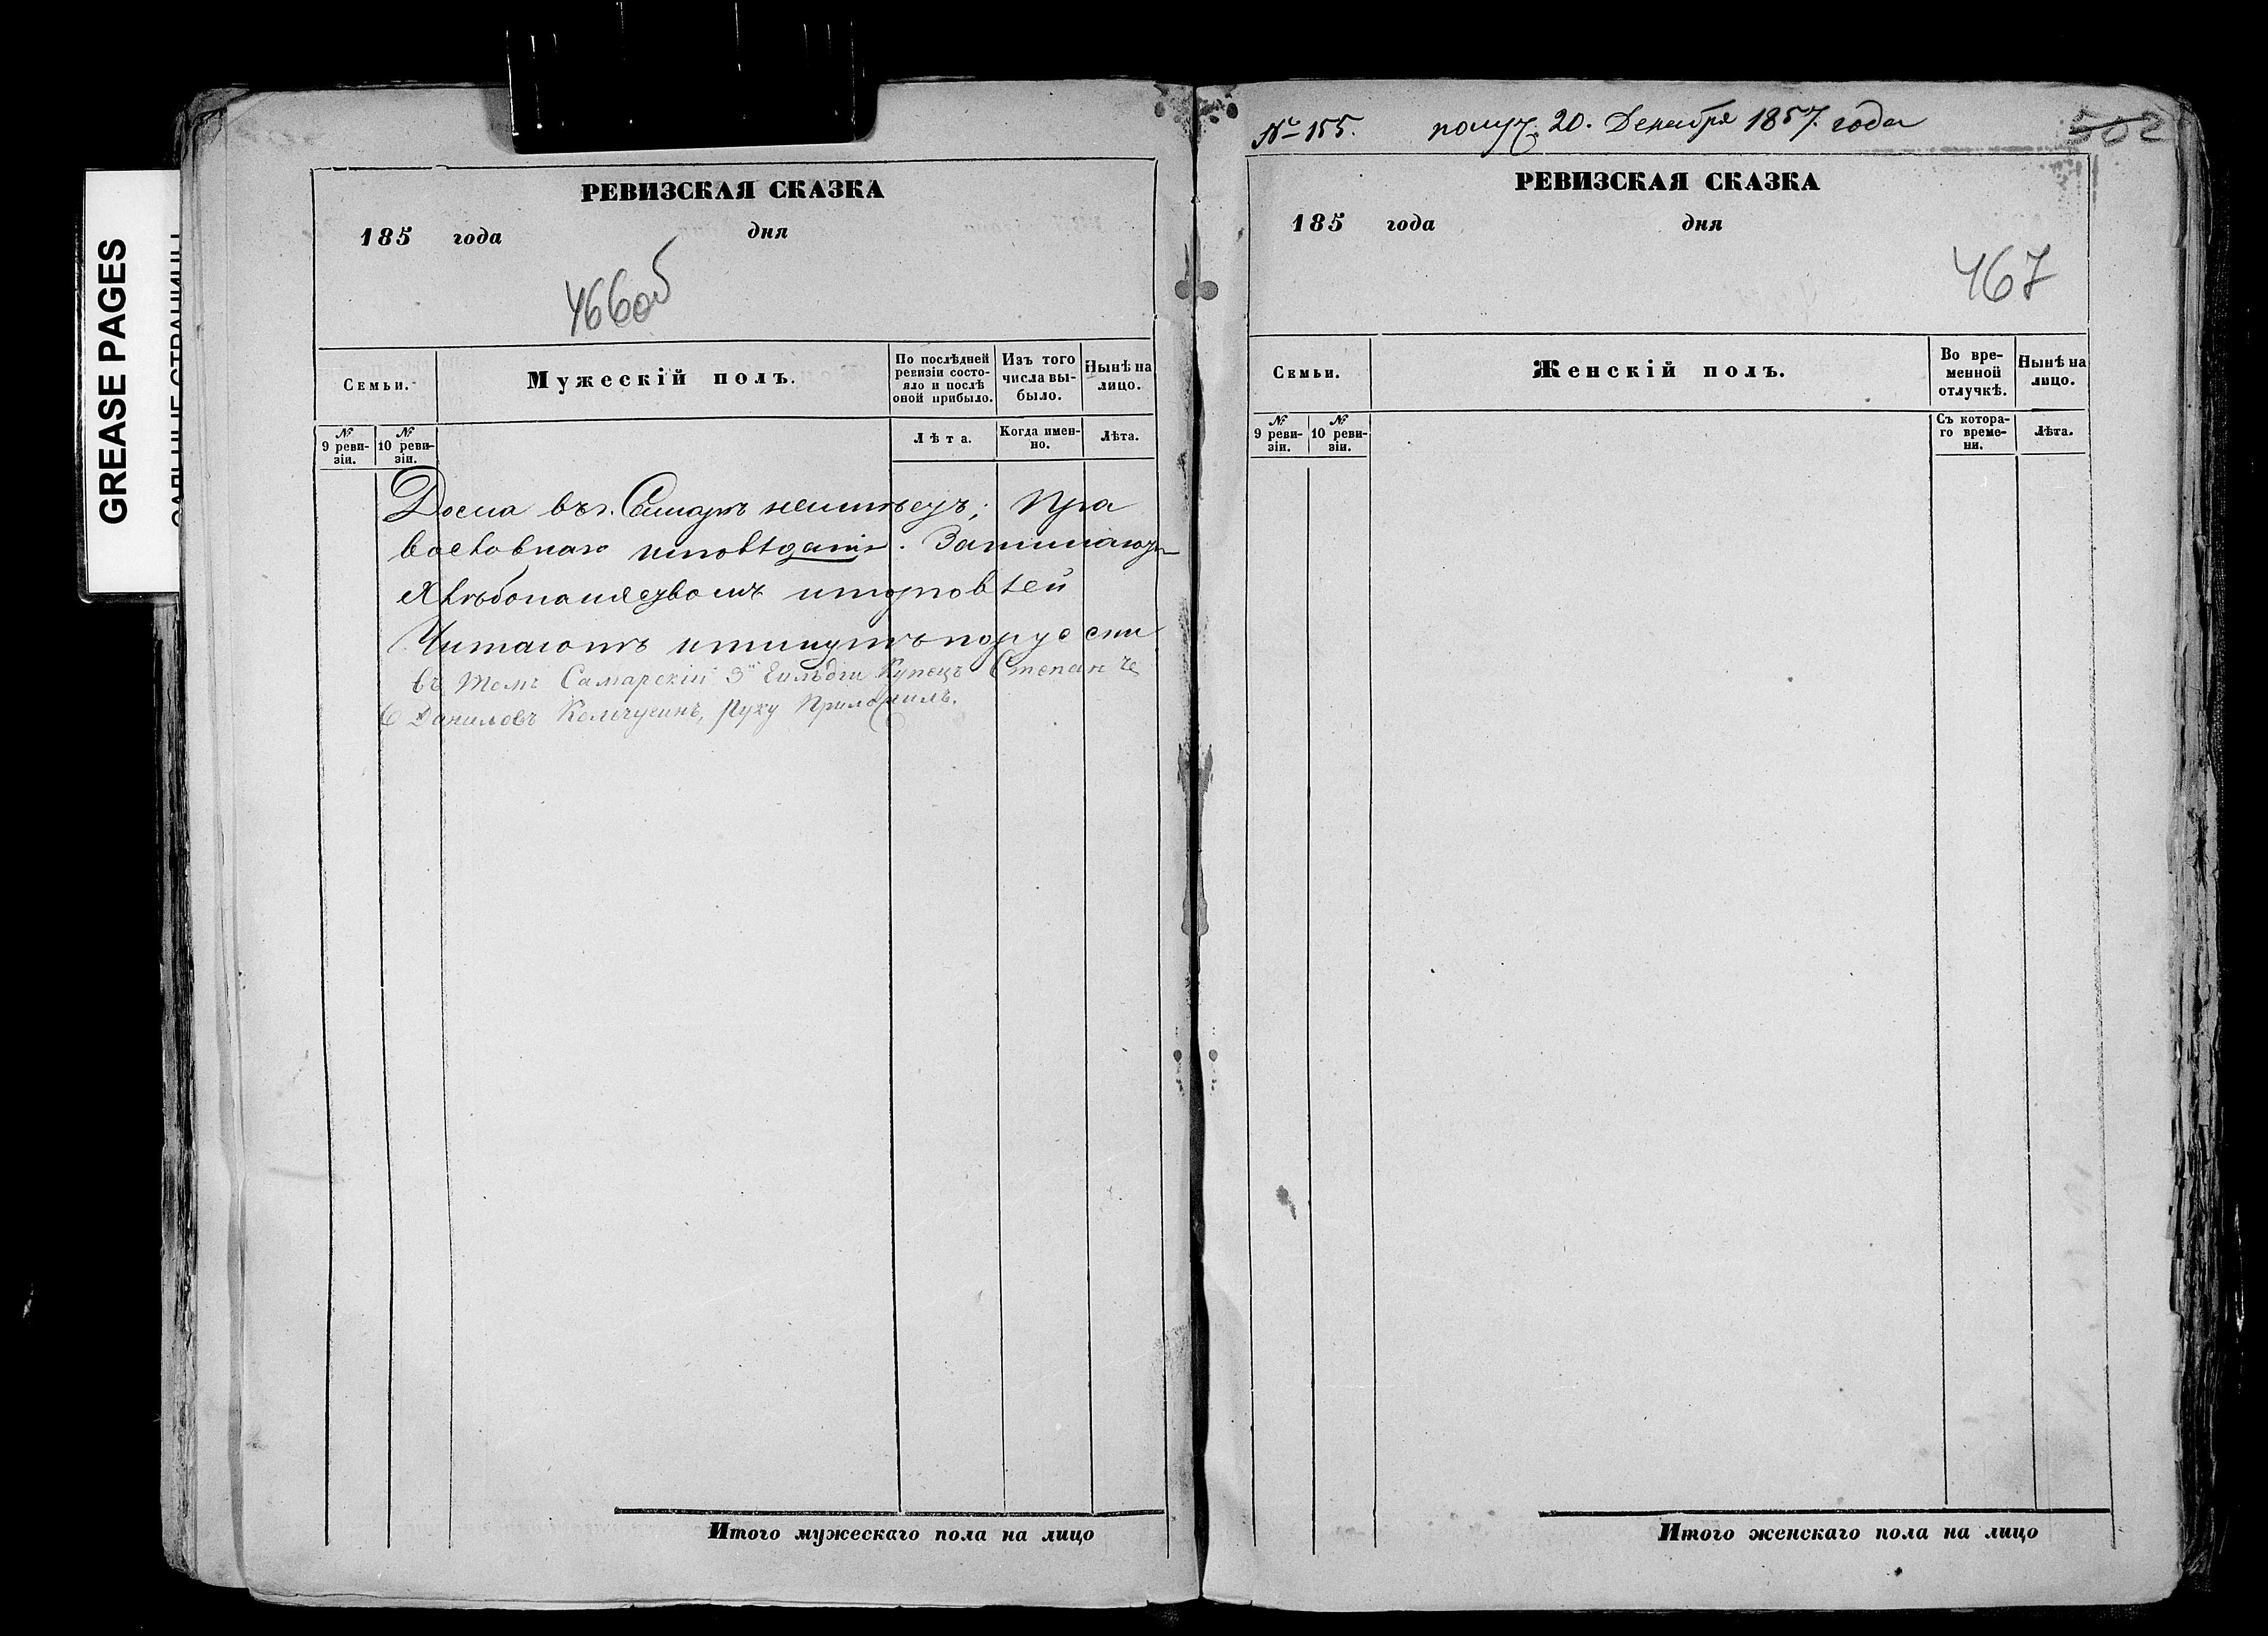 GREASE PAGES
РЕВИЗСКАЯ СКАЗКА
185 года дня
466об
Семьи.
Мужескій полъ.
По послѣдней ревизіи состояло и послѣ оной прибыло.
Изъ того числа выбыло.
Нынѣ на лицо.
№ 9 ревизіи.
№ 10 ревизіи.
Лѣта.
Когда именно.
Лѣта.
Дома въ г. Самарѣ неимѣетъ; Пра
вославнаго исповѣданія. Занимаются
Хлѣбопашествомъ иторговлей
Читаютъ ипишутъ порусски
въ томъ Самарскій 3й Гильдіи Купецъ Степан
Даниловъ Кольчугинъ, Руку Приложилъ.
Итого мужескаго пола на лицо
№ 155. получ. 20. Декабря 1857. года
502
РЕВИЗСКАЯ СКАЗКА
185 года дня
467
Семьи.
Женскій полъ.
Во временной отлучкѣ.
Нынѣ на лицо.
№ 9 ревизіи.
№ 10 ревизіи.
Съ котораго времени.
Лѣта.
Итого женскаго пола на лицо